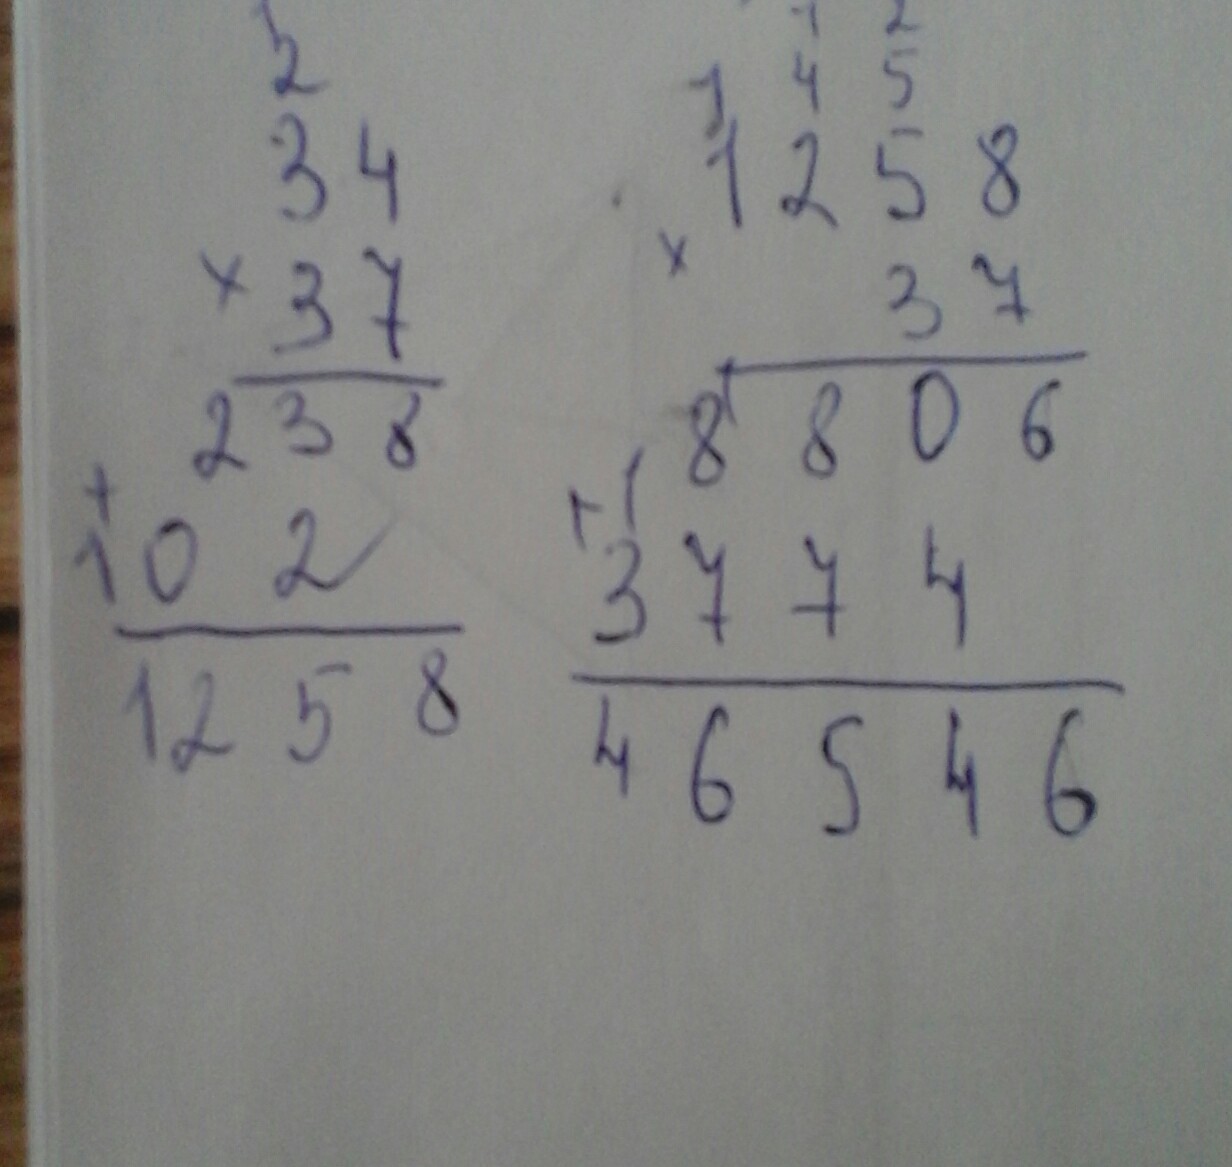 1
2
34
× 37
238
+
102
1258
1 2
1 4 5
1258
× 37
8806
+1
3774
46546